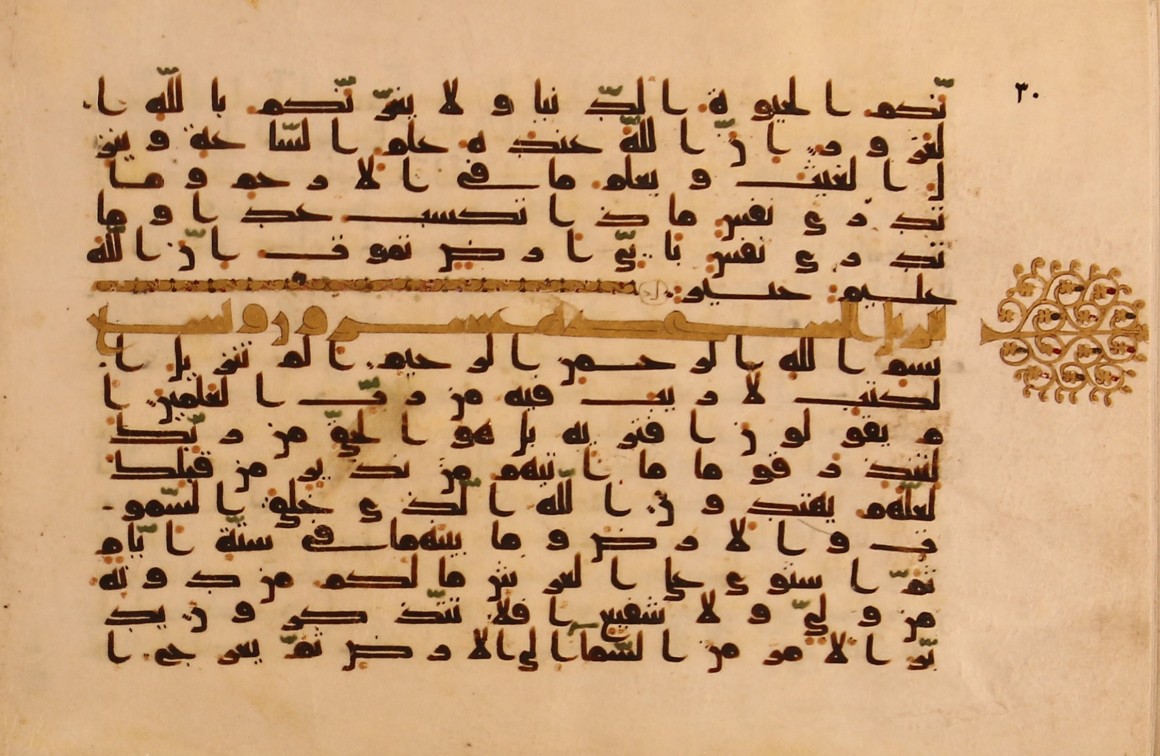 نكم الحيوة الدنيا ولا يغرنكم بالله ا
لغرور ان الله عنده علم الساعة وينز
ل الغيث ويعلم ما في الارحم وما
تدري نفس ماذا تكسب غدا وما
تدري نفس باي ارض تموت ان الله
عليم خبير
السجده عشرون وتسع
بسم الله الرحمن الرحيم الم تنزيل ا
لكتب لا ريب فيه من رب العلمين ا
م يقولون افتريه بل هو الحق من ربك
لتنذر قوما ما اتيهم من نذير من قبلك
لعلهم يهتدون الله الذي خلق السمو
ت والارض وما بينهما في ستة ايام
ثم استوى على العرش ما لكم من دونه
من ولي ولا شفيع افلا تتذكرون يد
بر الامر من السما الى الارض ثم يعرج ا
٣٠